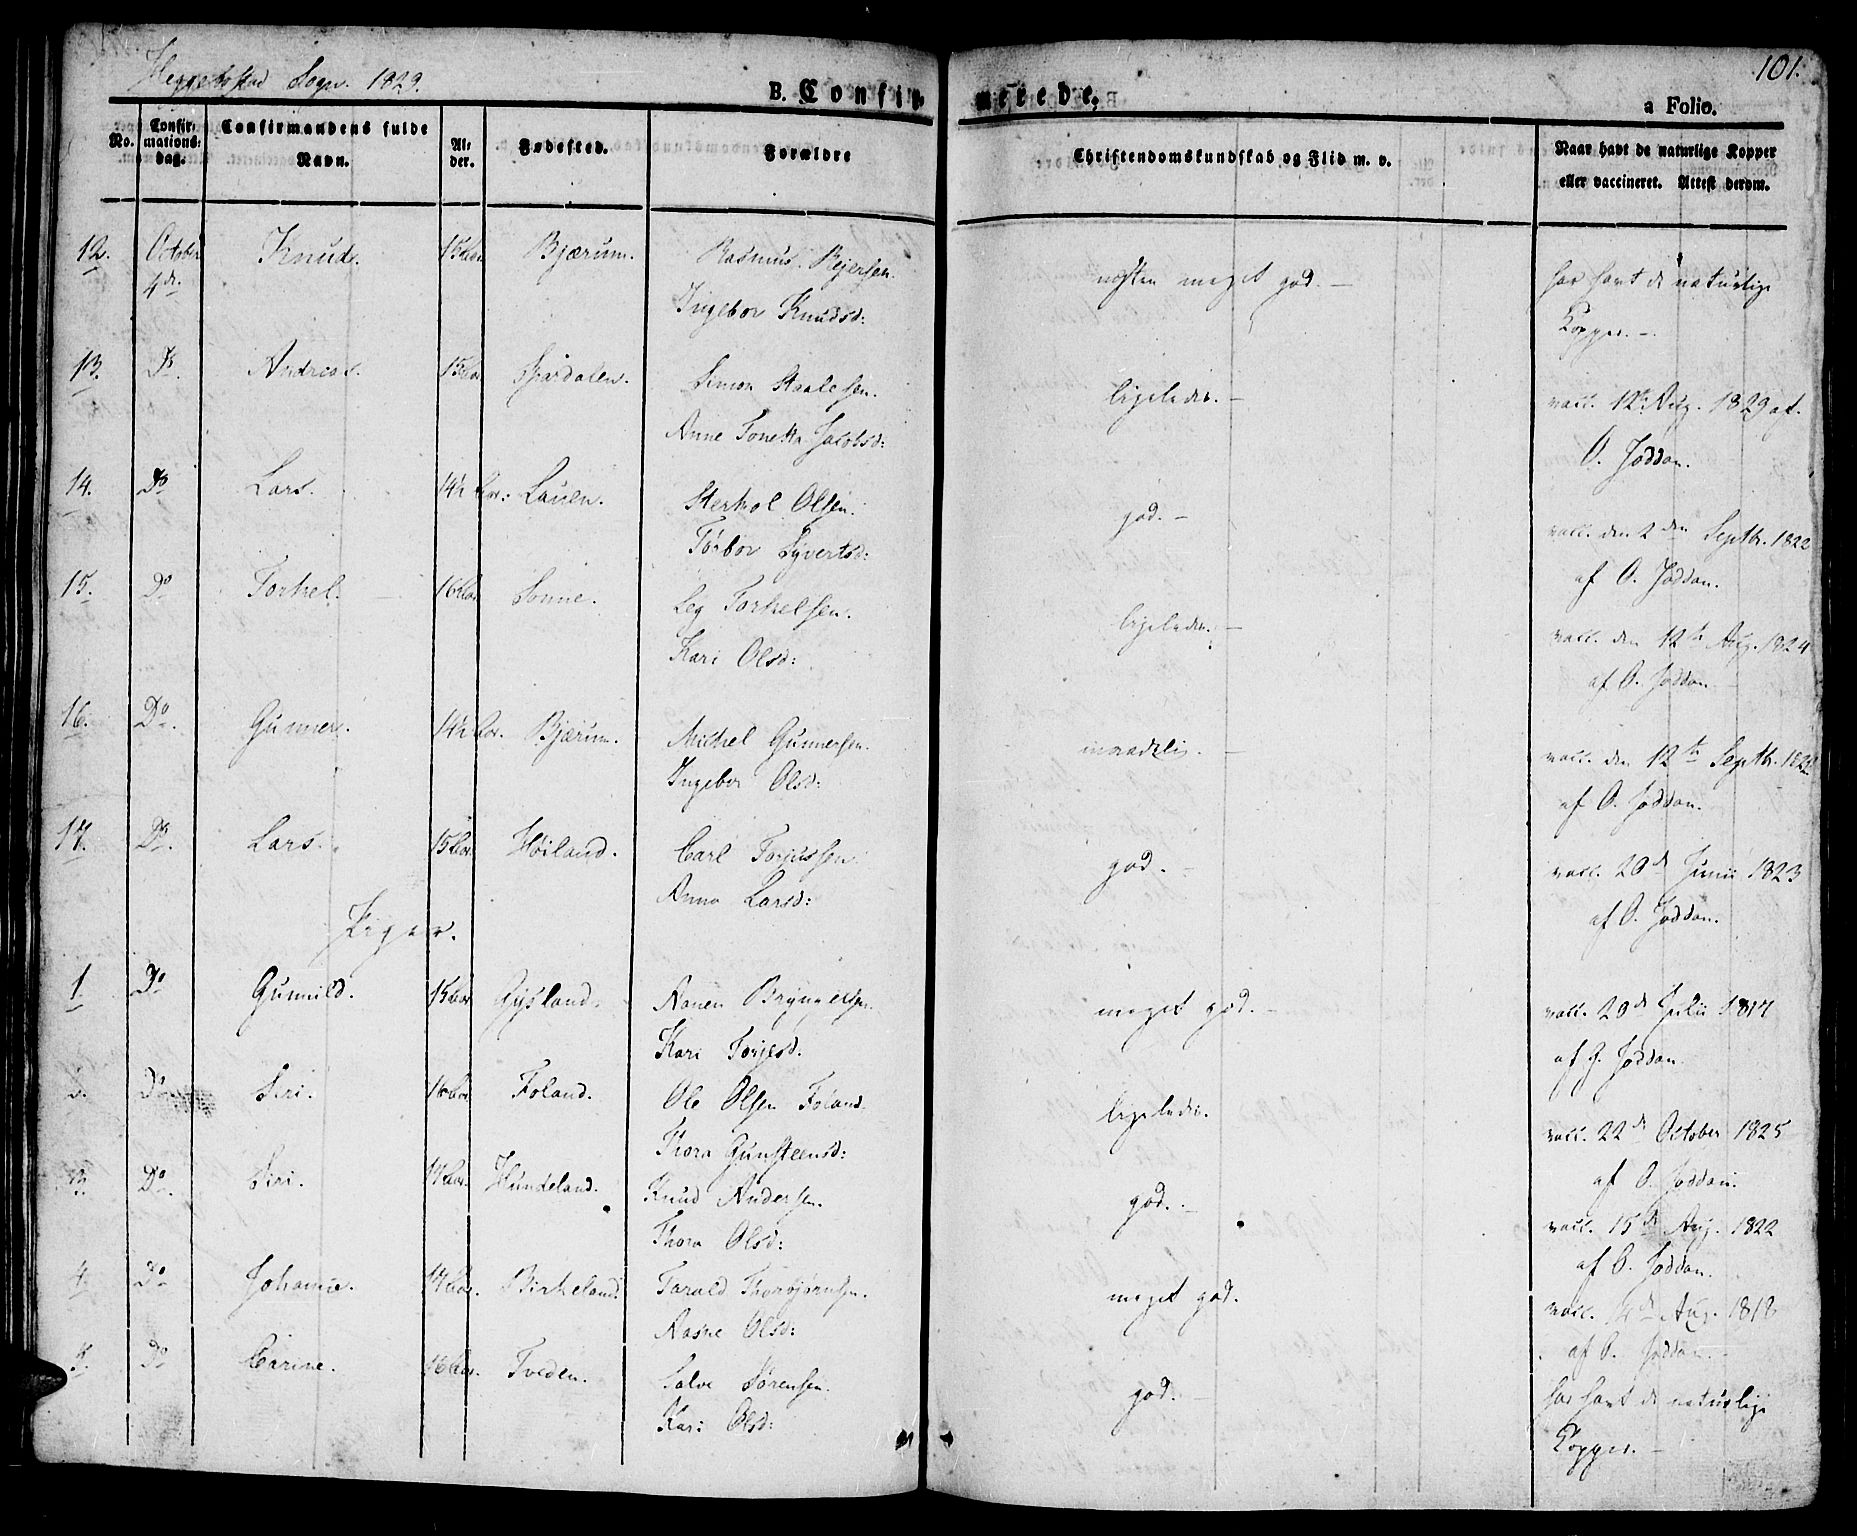 101.
Heggebostad Sogn. 1829.
B. Confir merede.
a Folio.
No. Confirmations-dag. Confirmandens fulde Navn. Alder. Fødested. Forældre Christendomskundskab og Flid m. v. Naar havt de naturlige Kopper eller vaccineret. Attest derom.
12. October Knud. 15 Aar. Bjærum. Rasmus Rejersen. næsten meget god. — har havt de naturlige
4de. Ingebor Knudsd: Kopper. —
13. Do. Andreas. 15 Aar Simon Staalesen. ligeledes. — vacc. 12te Aug. 1829 af.
Anne Tonetta Jacobsd: O. Joddan.
14. Do Lars. 14½ Aar: Lauen. Sterkol Olsen. god. — vacc. den 2den Septbr. 1822
Torbor Syvertsd: af O. Joddan.
15. Do Torkel. 16 Aar. Sonne. Leg Torkelsen. ligeledes. — vacc. den 12te Aug. 1824
Kari Olsd: af O. Joddan.
16. Do. Gunner. 14½ Aar. Bjærum. Michel Gunnersen. — vacc. den 12te Septbr.
Ingebor Olsd: af O. Joddan.
17. Do. Lars. 15 Aar. Høiland. Carl Torjussen god. — vacc. 20de Junii 1823
Anna Larsd: af O. Joddan.
Piger.
1 Do Gunnild. 15 Aar Gysland. Aanen Bryngelsen. meget god. — vacc. 20de Julii 1817
Kari Torjesd. af O. Joddan.
2. Do. Siri. 16 Aar. Foland. Ole Olsen Foland. ligeledes. vacc. 22de October 1825
Thora Gunsteensd: af O. Joddan.
3. Do. Siri. 17 Aar. Hundeland. Knud Andersen. god. — vacc. 15de Aug. 1822
Thora Olsd: af O. Joddan.
4. Do Johanne. 17 Aar. Birkeland. Tarald Thorbjørnsen. meget god. vacc. Aug. 1818
Aasne Olsd: af O. Joddan.
5. Do Carine. 16 Aar. Tveden. Salve Sørensen. god. — har havt de naturlige
Kari Olsd: Kopper. —